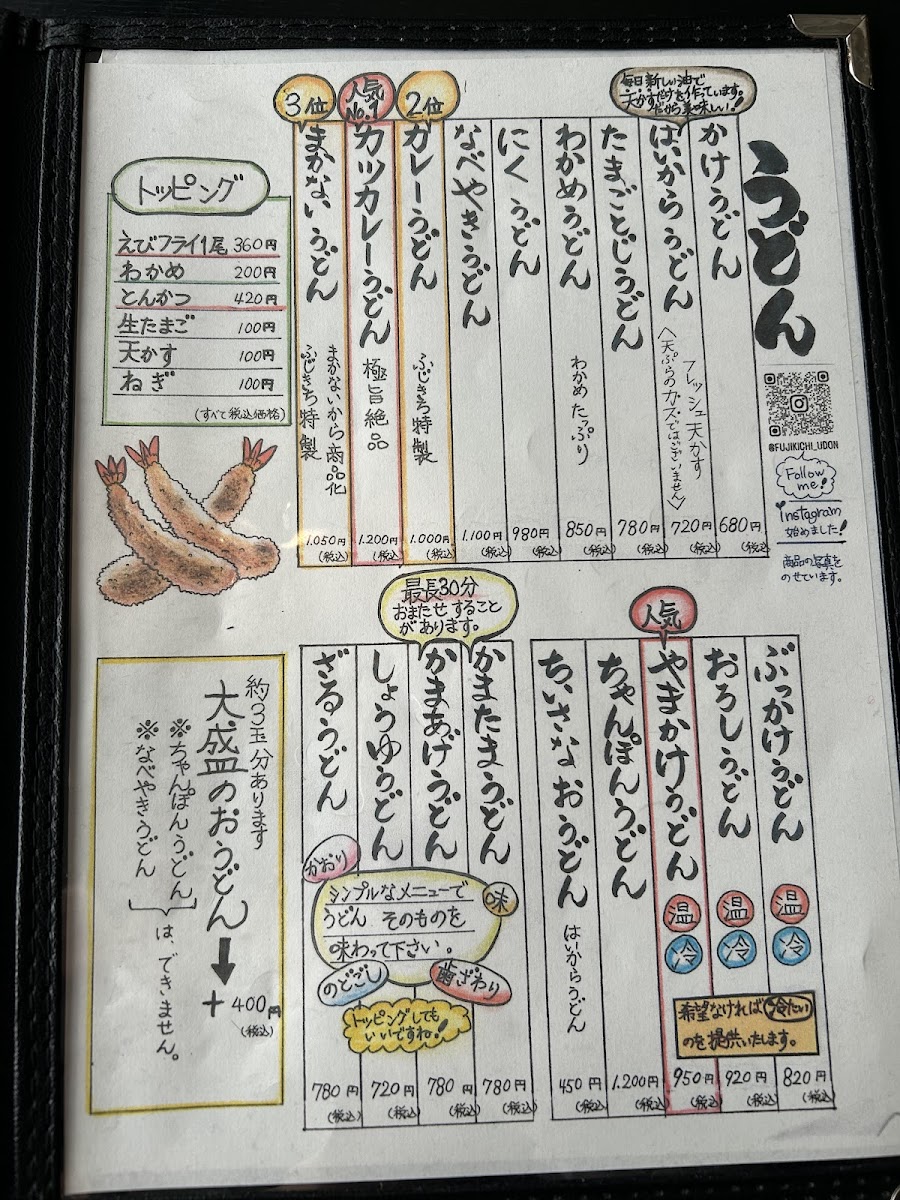 うどん
@FUJIKICHI_UDON
Follow
me!
instagram
始めました!
商品の写真を
のせています。
毎日新しい油で
天かすだけを作っています。
だから美味しい!!
かけうどん
680円
(税込)
はいからうどん
フレッシュ天かす
〈天ぷらのカスではございません〉
720円
(税込)
たまごとじうどん
780円
(税込)
わかめうどん
わかめたっぷり
850円
(税込)
にくうどん
980円
(税込)
なべやきうどん
1.100円
(税込)
2位
カレーうどん
ふじきち特製
1.000円
(税込)
人気
No.1
カツカレーうどん
極旨絶品
1.200円
(税込)
3位
まかないうどん
まかないから商品化
ふじきち特製
1.050円
(税込)
トッピング
えびフライ1尾 360円
わかめ 200円
とんかつ 420円
生たまご 100円
天かす 100円
ねぎ 100円
(すべて税込価格)
ぶっかけうどん
温
冷
820円
(税込)
おろしうどん
温
冷
920円
(税込)
人気
やまかけうどん
温
冷
950円
(税込)
希望なければ冷たい
のを提供いたします。
ちゃんぽんうどん
1.200円
(税込)
ちいさなおうどん
はいからうどん
450円
(税込)
最長30分
おまたせすること
があります。
かまたまうどん
780円
(税込)
かまあげうどん
780円
(税込)
しょうゆうどん
720円
(税込)
ざるうどん
780円
(税込)
かおり
味
シンプルなメニューで
うどんそのものを
味わって下さい。
のどごし
歯ざわり
トッピングしても
いいですね!
約3玉分あります
大盛のおうどん
+400円
(税込)
※ちゃんぽんうどん
※なべやきうどん
は、できません。